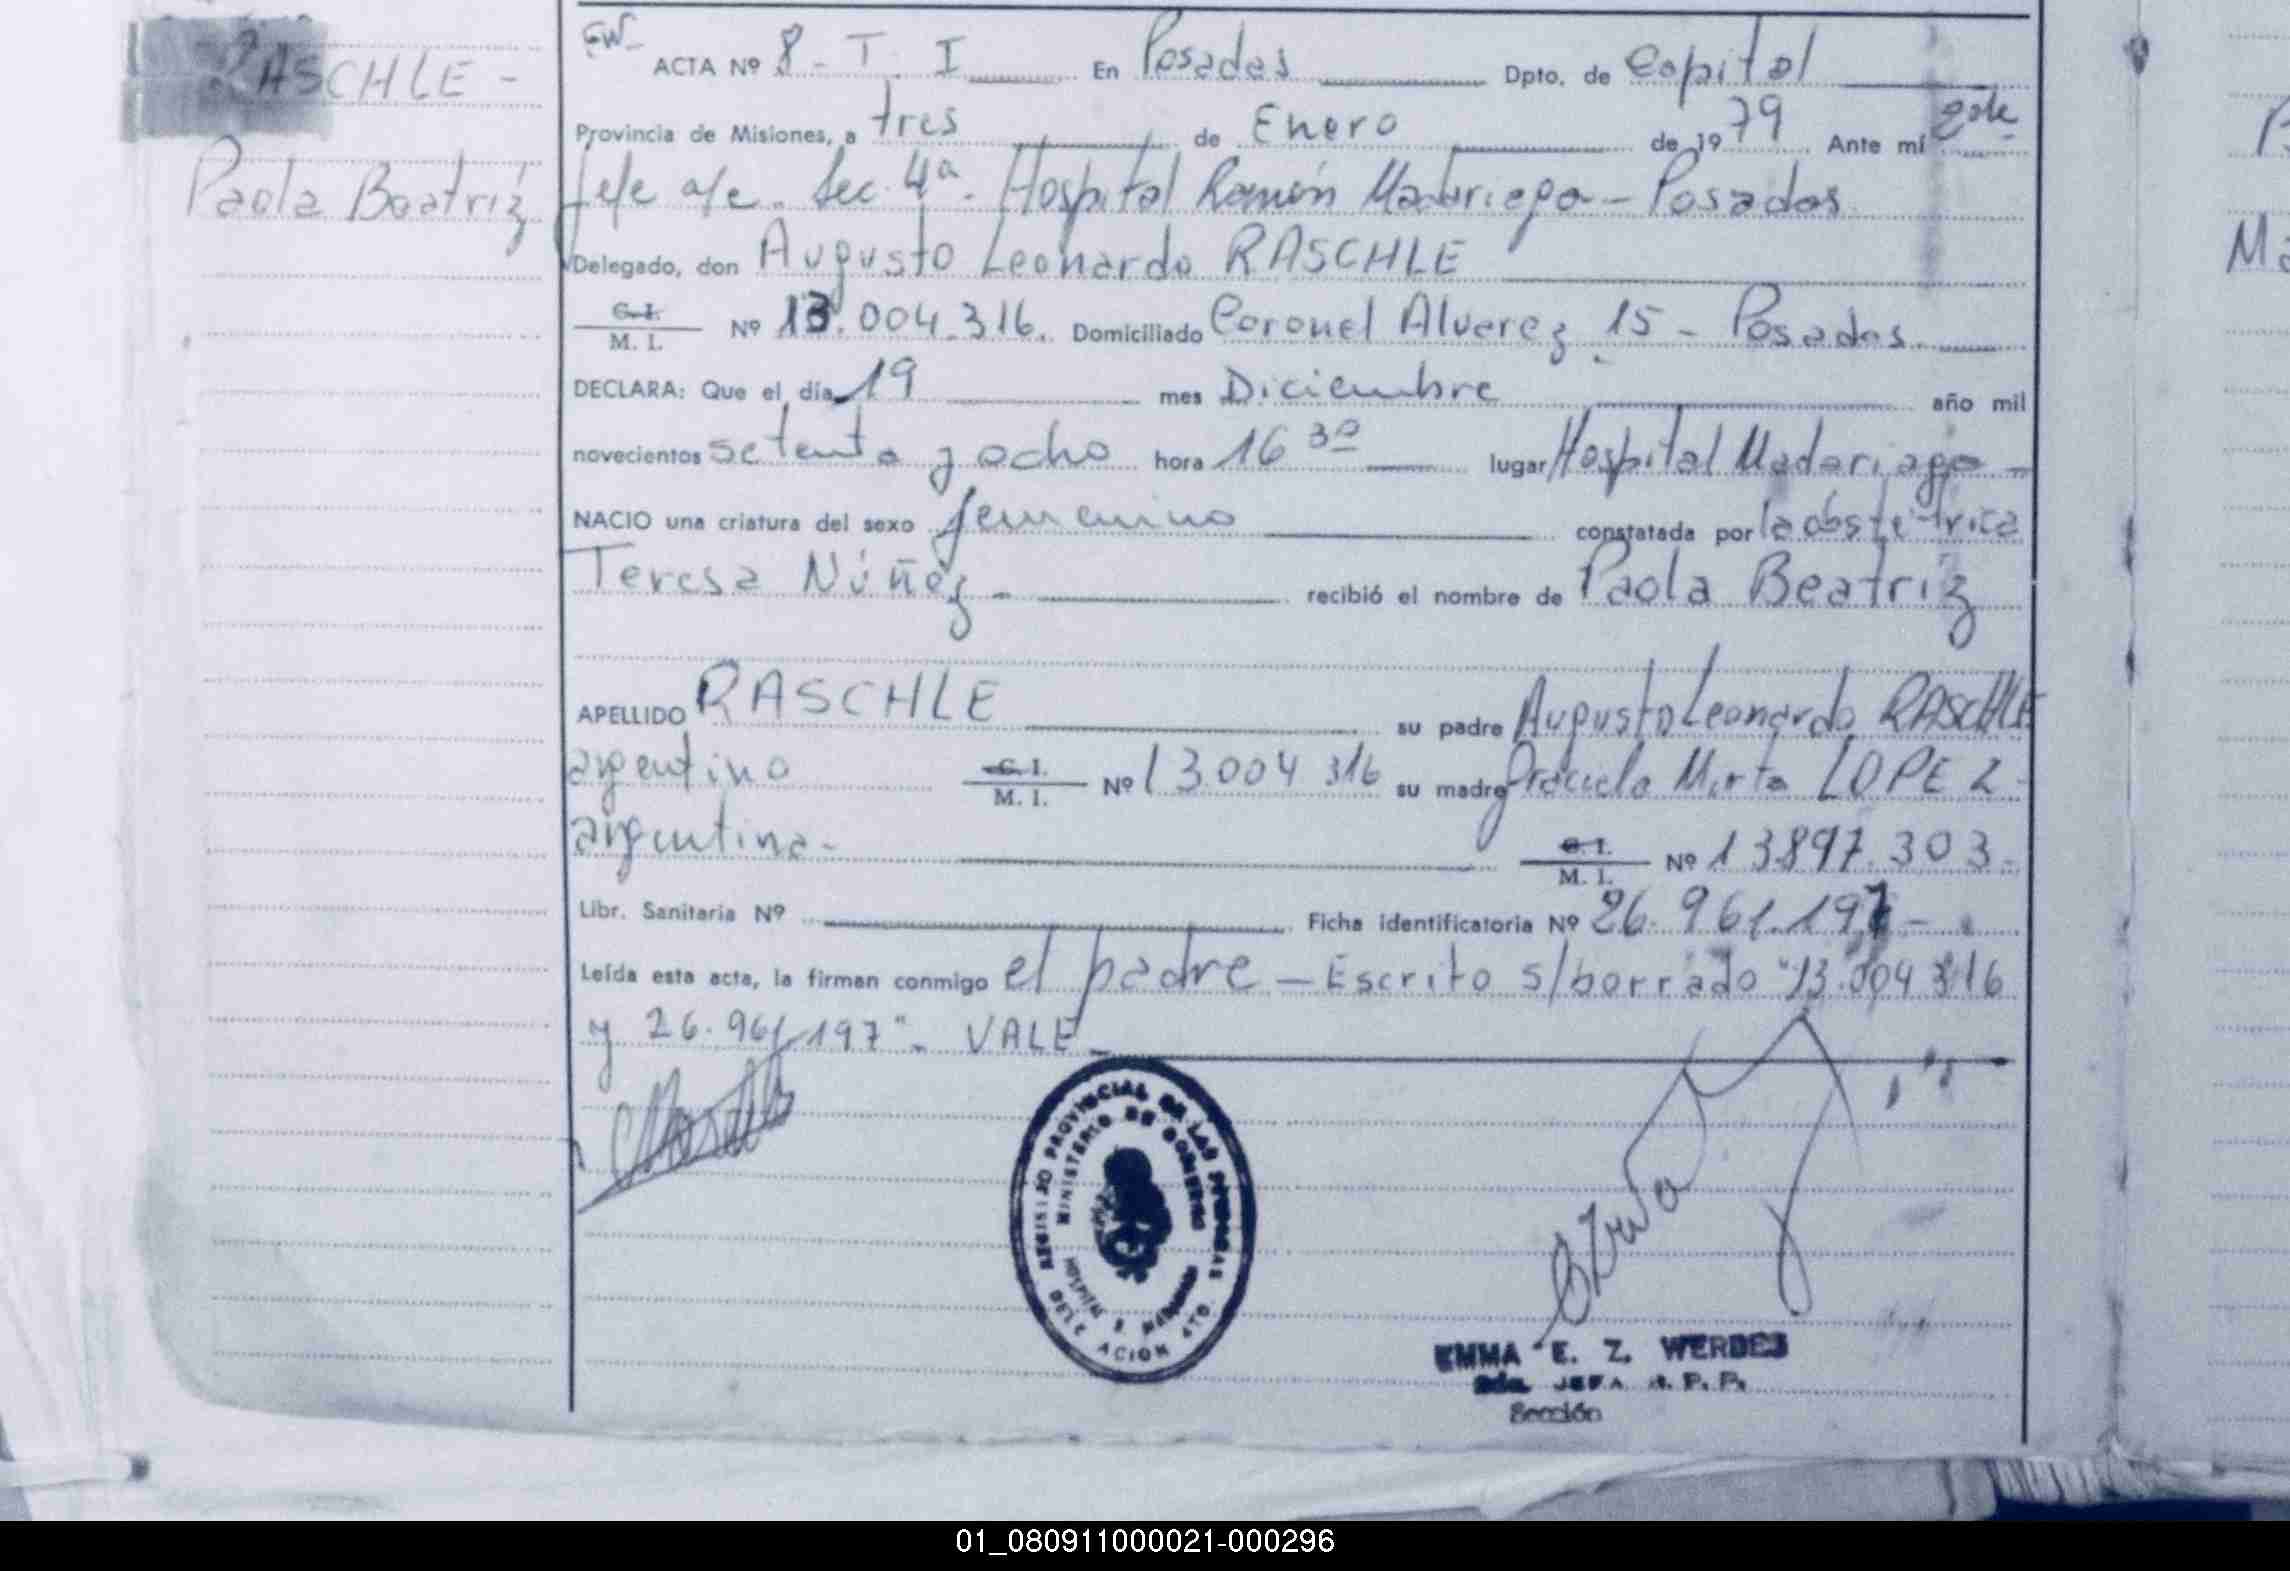 RASCHLE -
Paola Beatríz
EW-
ACTA Nº 8 - T. I En Posadas Dpto. de Capital
Provincia de Misiones, a tres de Enero de 1979 Ante mí 2da
jefe a/c. Sec. 4ª. Hospital Ramón Madariaga - Posadas
Delegado, don Augusto Leonardo RASCHLE
C. I.
M. I. Nº 13.004.316. Domiciliado Coronel Alvarez 15 - Posadas.
DECLARA: Que el día 19 mes Diciembre año mil
novecientos setenta y ocho hora 16 30 lugar Hospital Madariaga -
NACIO una criatura del sexo femenino constatada por la obstétrica
Teresa Núñez - recibió el nombre de Paola Beatríz
APELLIDO RASCHLE su padre Augusto Leonardo RASCHLE
argentino C. I. M. I. Nº 13.004 316 su madre Graciela Mirta LOPEZ -
argentina - C. I. M. I. Nº 13897.303.
Libr. Sanitaria Nº Ficha identificatoria Nº 26.961.197 -
Leída esta acta, la firman conmigo el padre - Escrito s/borrado "13.004 316
y 26.961.197" - VALE -
REGISTRO PROVINCIAL DE LAS PERSONAS
MINISTERIO DE GOBIERNO
HOSPITAL R. MADARIAGA
DELEGACION 4TO.
EMMA E. Z. WERDES
2da. JEFA R. P. P.
Sección
01_080911000021-000296